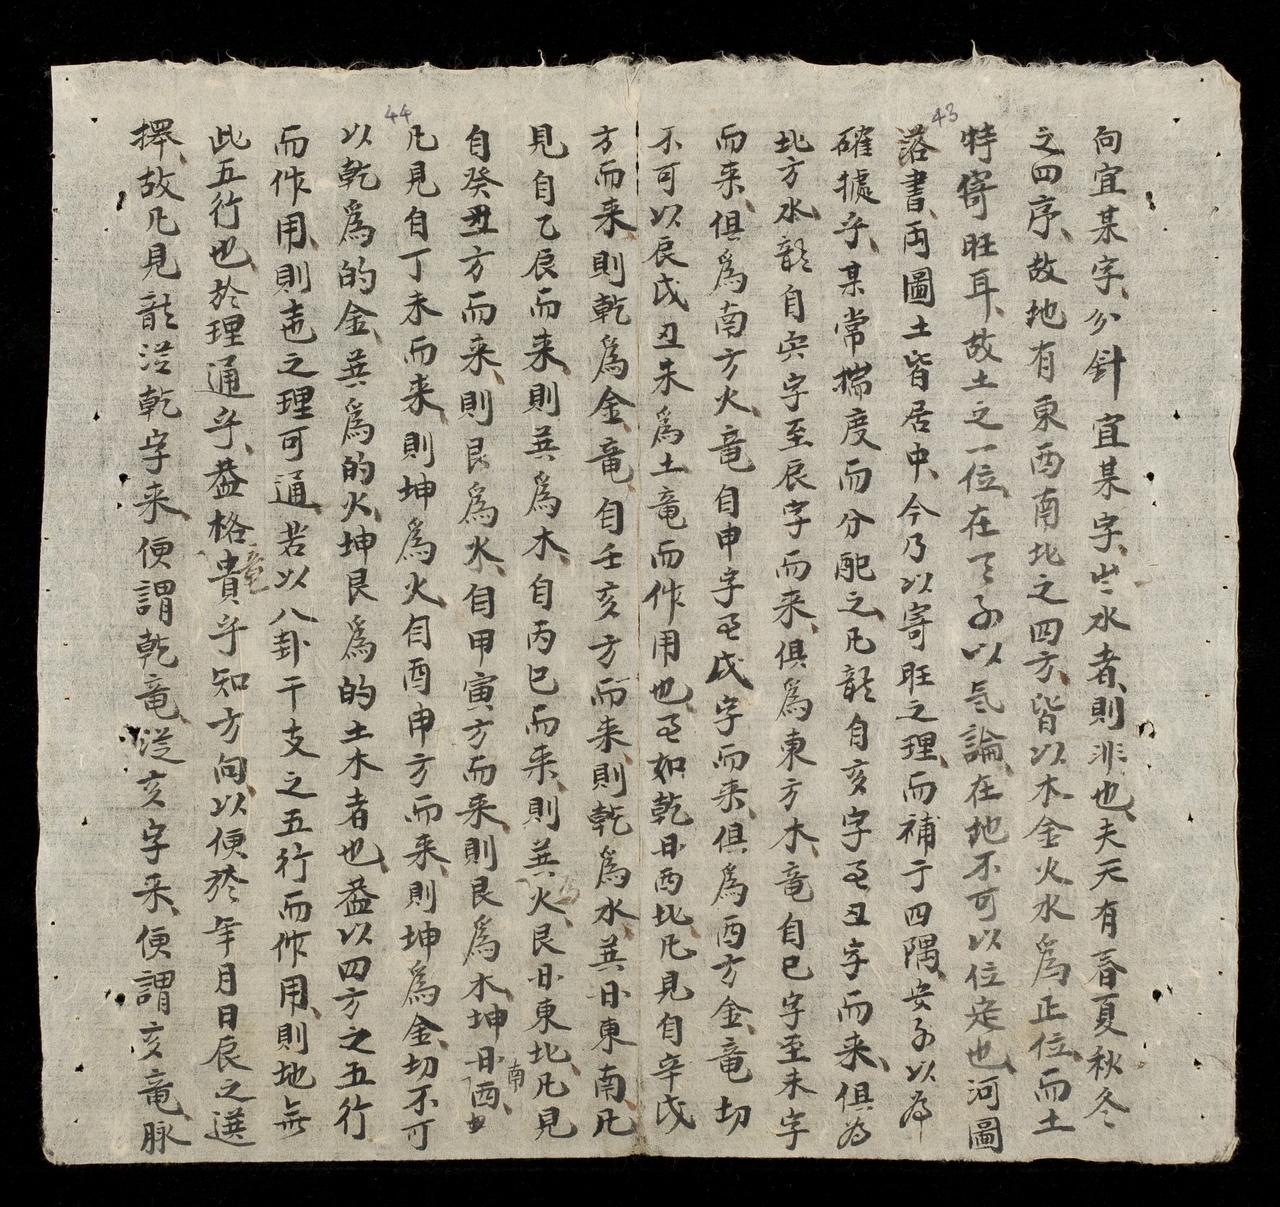 43
向宜某字、分針宜某字、出水者、則非也、夫天有春夏秋冬
之四序、故地有東西南北之四方、皆以木金火水為正位、而土
特寄旺耳、故土之一位、在天可以气論、在地不可以位定也、河圖
落書、両圖土皆居中、今乃以寄旺之理、而補于四隅、安可以為
確據乎、某常揣度而分配之、凡龍自亥字至丑字而来、俱為
北方水、龍自寅字至辰字而来、俱為東方木竜、自巳字至未字
而来、俱為南方火竜、自申字至戌字而来、俱為西方金竜、切
不可以辰戌丑未為土竜而作用也、至如乾曰西北、凡見自辛戌
44
方而来、則乾為金竜、自壬亥方而来、則乾為水、巽曰東南、凡
見自乙辰而来、則巽為木、自丙巳而来、則巽為火、艮曰東北、凡見
自癸丑方而来、則艮為水、自甲寅方而来、則艮為木、坤曰西南、
凡見自丁未而来、則坤為火、自酉申方而来、則坤為金、切不可
以乾為的金、巽為的火、坤艮為的土木者也、益以四方之五行
而作用、則造之理可通、若以八卦干支之五行而作用、則地無
此五行也、於理通乎、益格竜貴乎知方向、以便於年月日辰之選
擇、故凡見龍從乾字来、便謂乾竜、從亥字来、便謂亥竜、脉